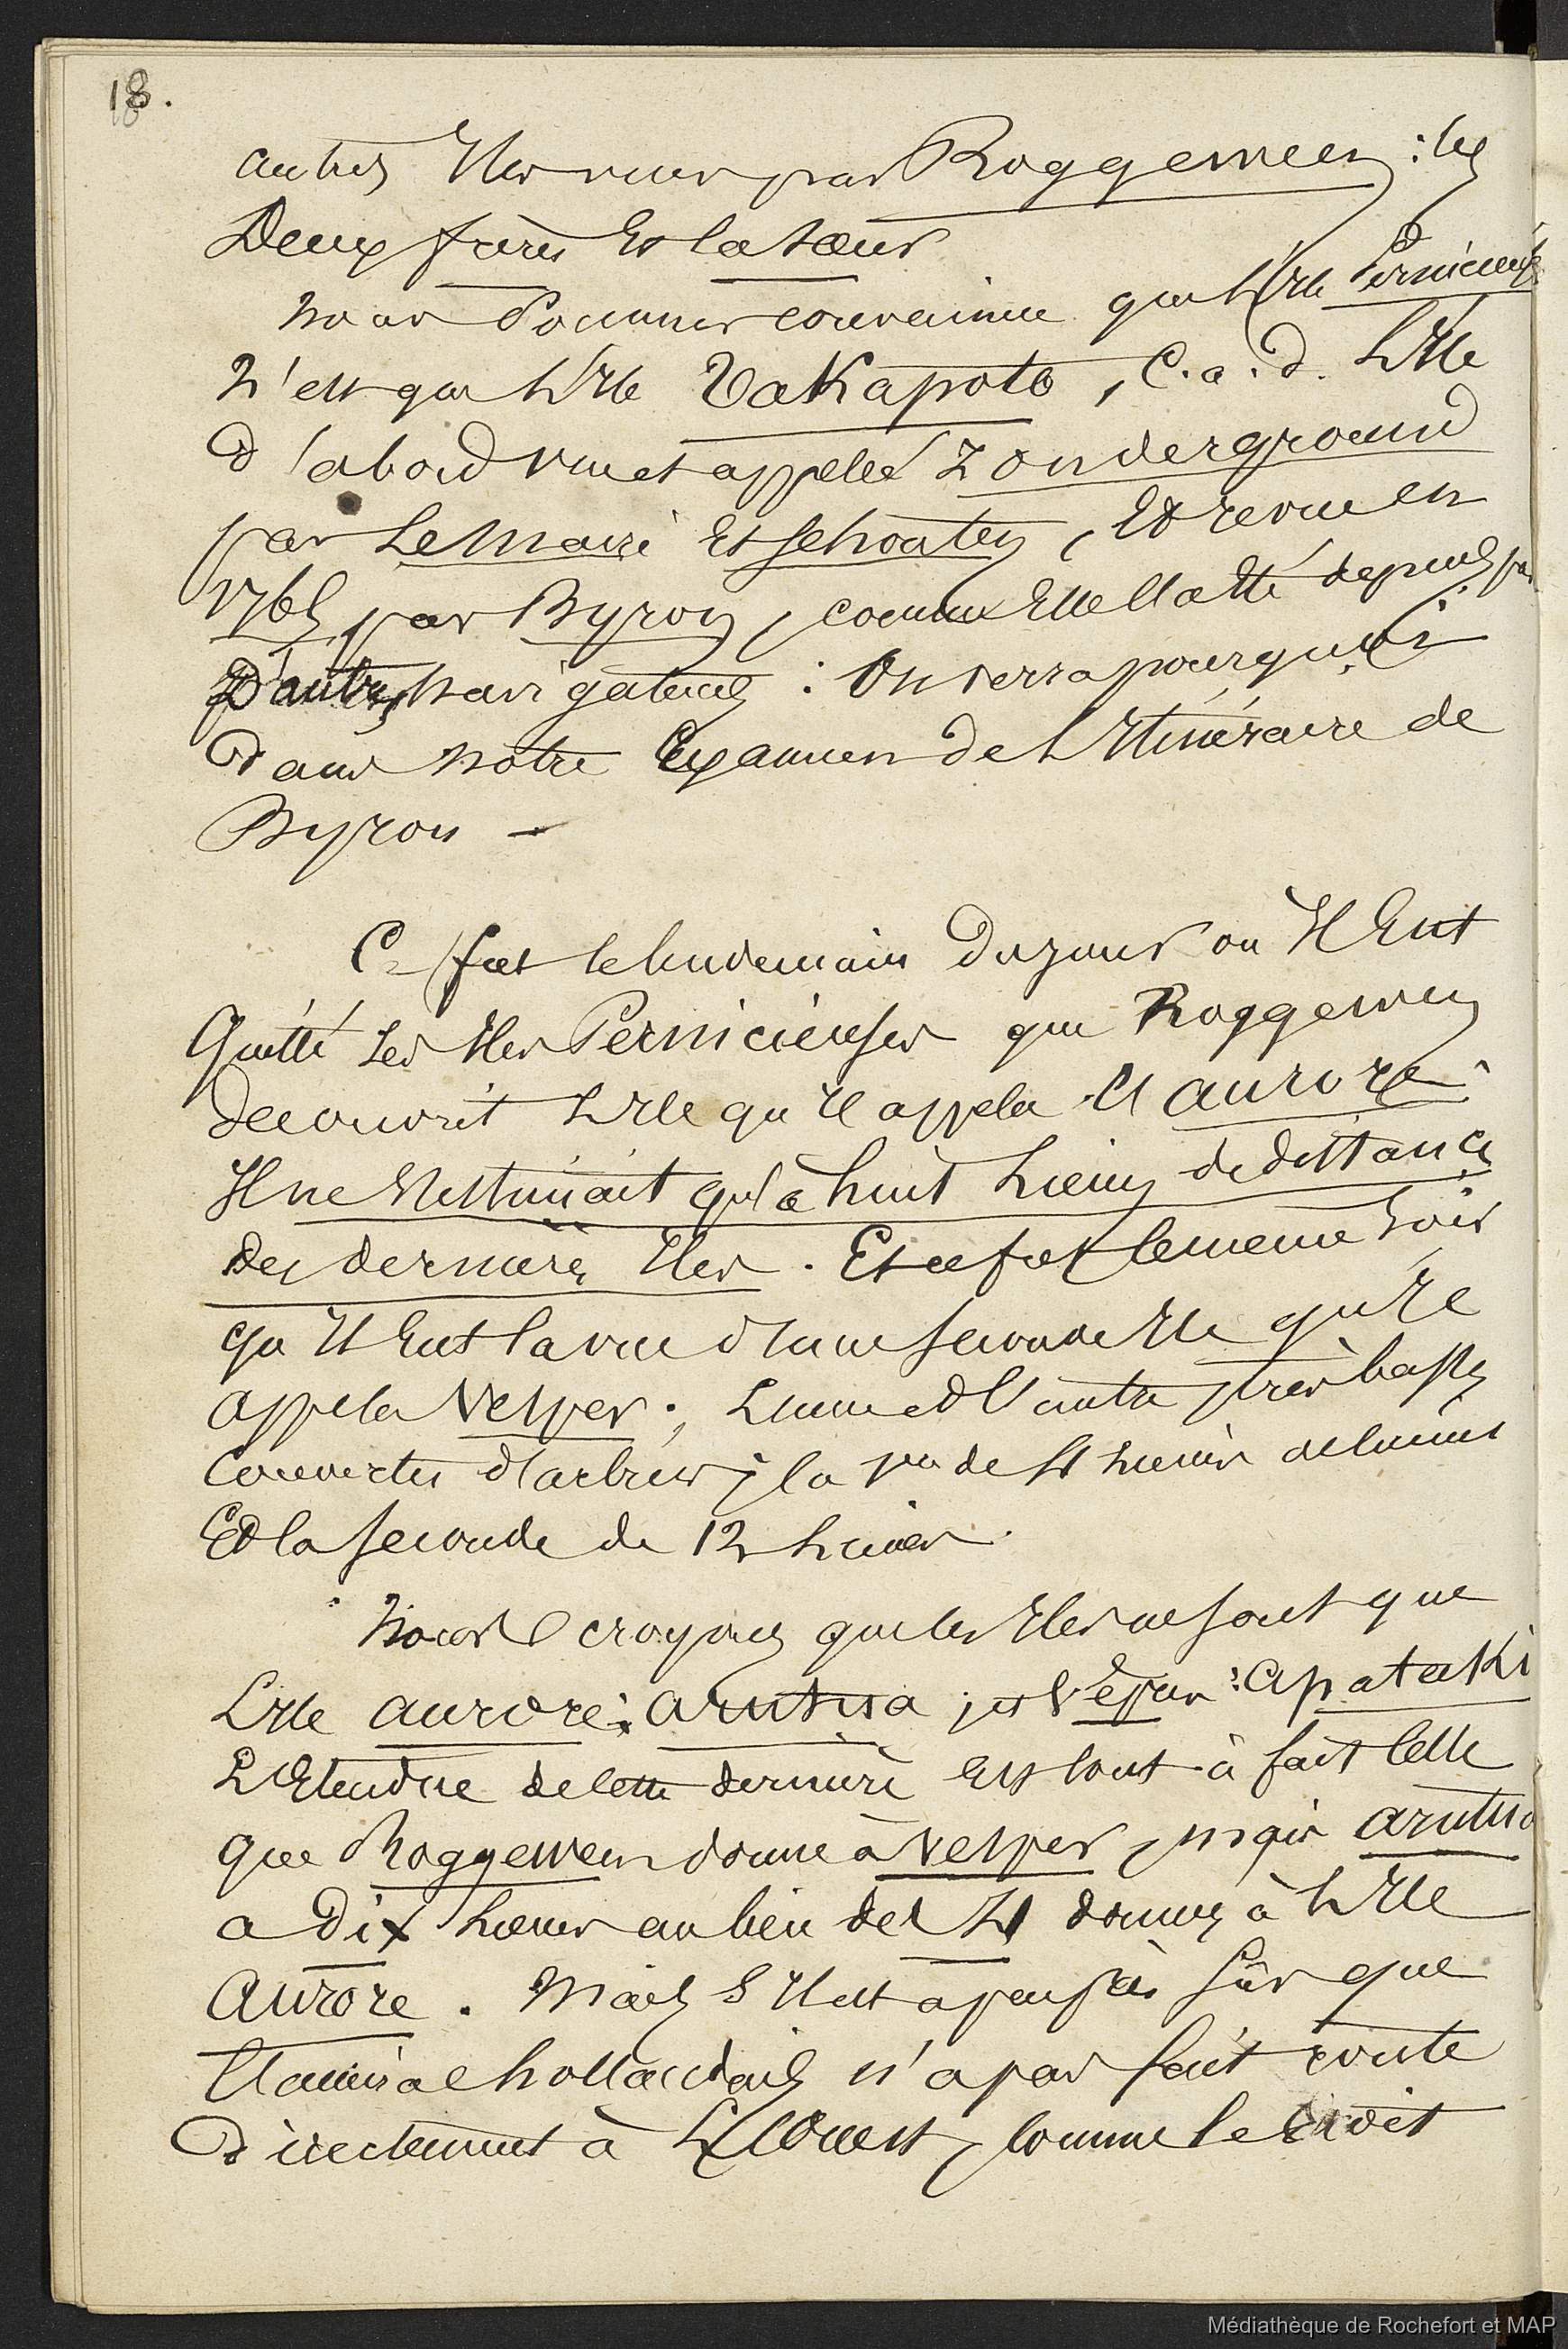 18.
autres Iles vues par Roggeween : les
Deux frères et la sœur
nous sommes convaincu que L'Ile Pernicieuse
n'est que L'Ile Takapoto, C.a.d. L'Ile
d'abord vue et appelée Zonderground
par Lemaire et Schouten, et revue en
1765 par Byron, comme Elle l'a été depuis par
D'autres navigateurs : On verra pourquoi
dans notre Examen de L'Itinéraire de
Byron -
Ce fut le lendemain du jour ou Il Eut
Quitté les Iles Pernicieuses que Roggewen
decouvrit L'Ile qu'Il appela l'aurore :
Il ne l'estimait qu'à huit Lieues de distance
des dernières Iles. Et ce fut le meme soir
qu'Il Eut la vue d'une seconde Ile qu'Il
appela Vesper ; L'une et l'autre très basses
Couvertes d'arbres ; la 1re de 4 Lieues de
Et la seconde de 12 Lieues.
Nous croyons que les Iles ne sont que
L'Ile aurore : arutua ; et Vesper : apataki
L'Etendue de cette dernière est tout à fait celle
que Roggeween donne à Vesper, mais arutua
a Dix Lieues au lieu des 4 donnés à L'Ile
Aurore. Mais S'Il est apeuprès sûr que
l'amiral hollandais n'a pas fait route
Directement à L'Ouest, comme le croit
Médiathèque de Rochefort et MAP